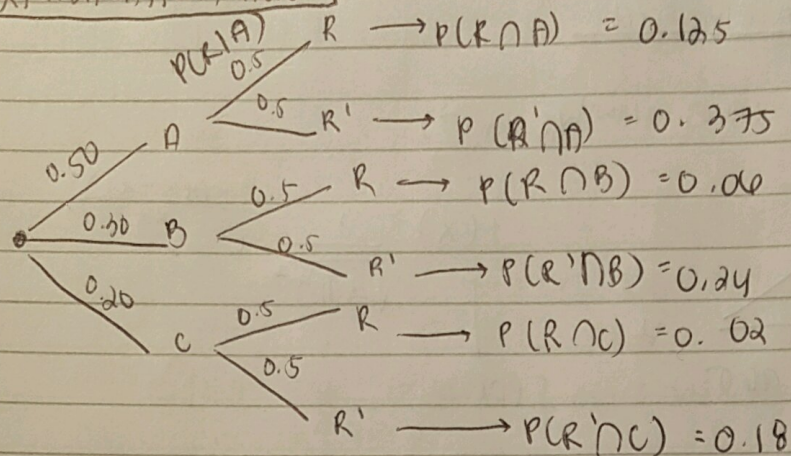 P(R|A) 0.5 R → P(R∩A) = 0.125
0.5 R' → P(R'∩A) = 0.375
0.50 A
0.5 R → P(R∩B) = 0.06
0.30 B
0.5 R' → P(R'∩B) = 0.24
0.20 C
0.5 R → P(R∩C) = 0.02
0.5 R' → P(R'∩C) = 0.18